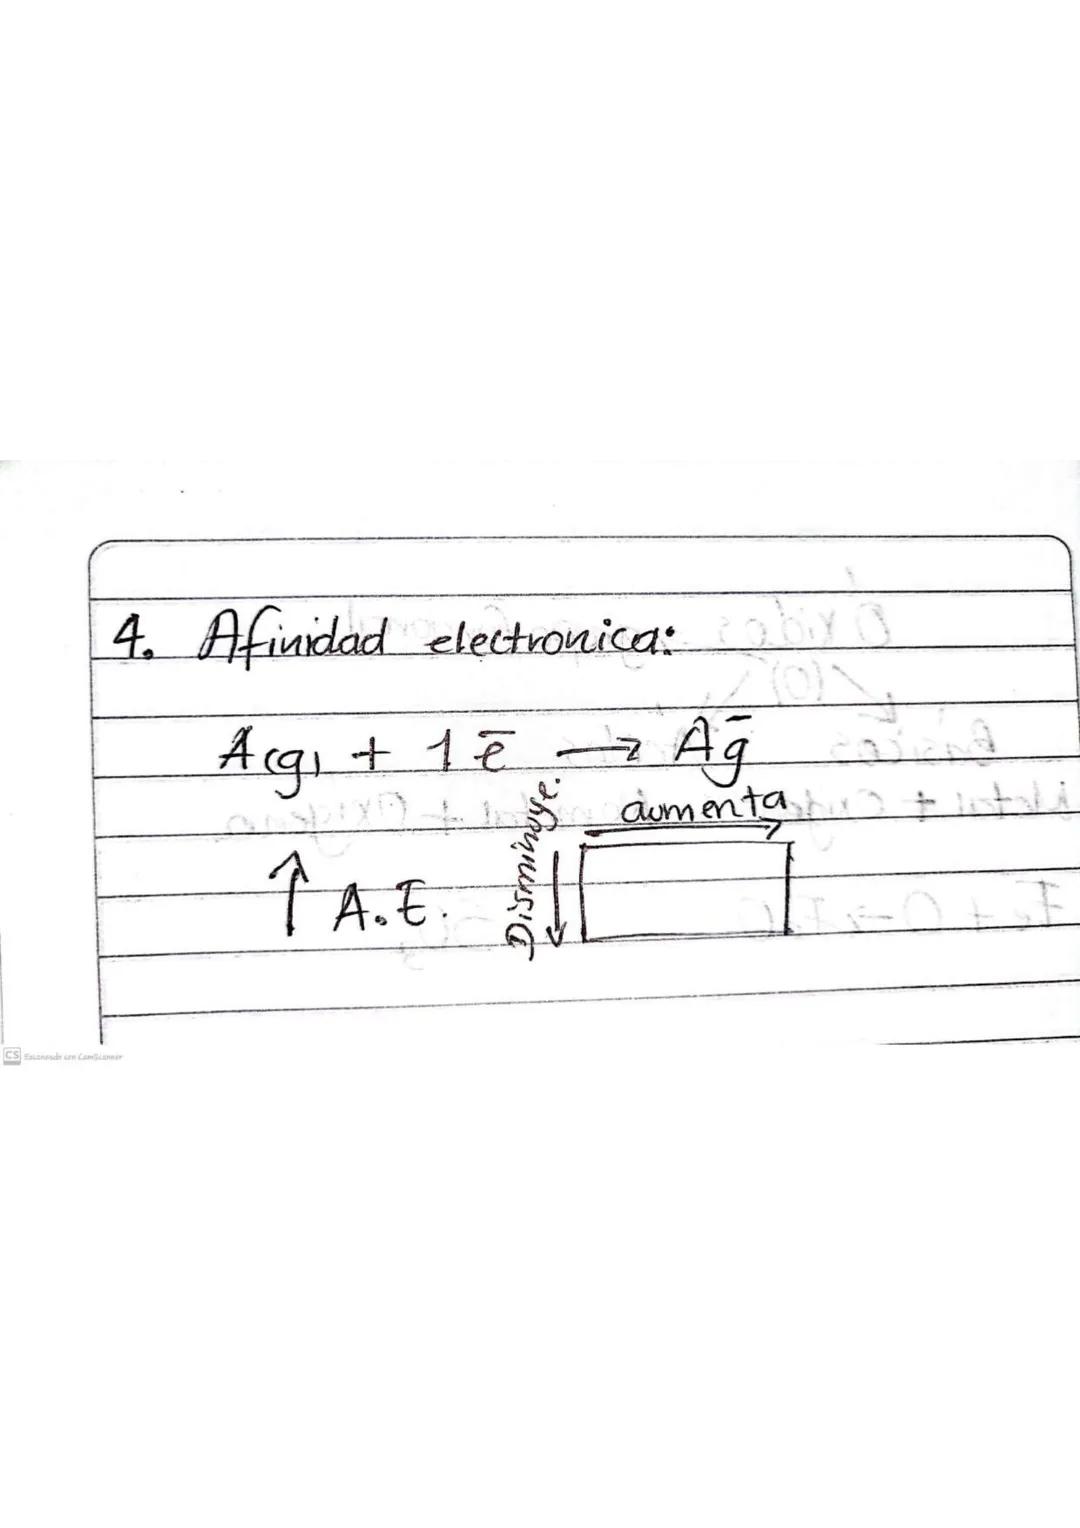 4. Afinidad electronica:
A(g) + 1 e̅ → A̅g
aumenta
Disminuye.
↑ A.E.
CS Escaneado con CamScanner